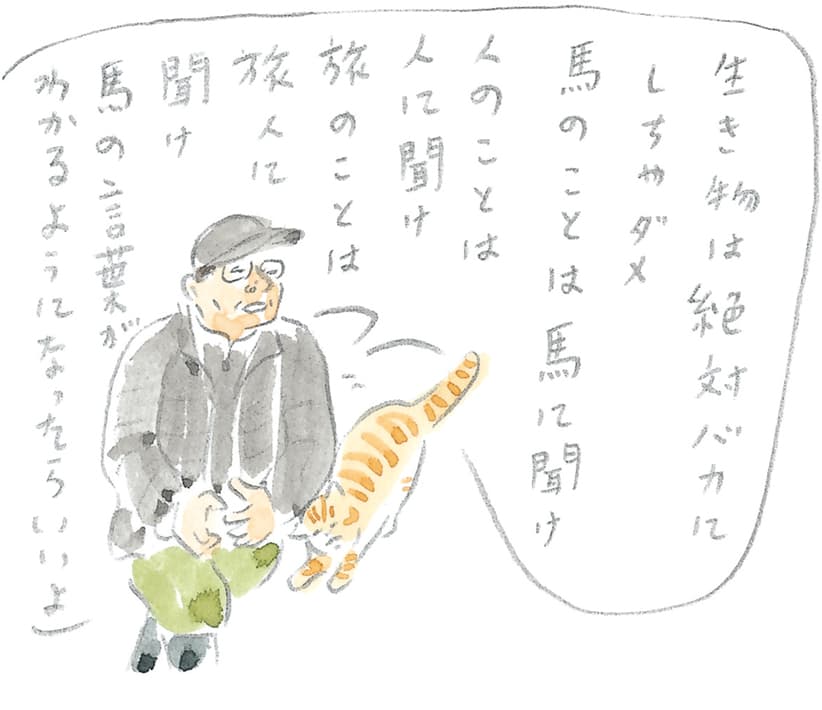 生き物は絶対バカに
しちゃダメ
馬のことは馬に聞け
人のことは
人に聞け
旅のことは
旅人に
聞け
馬の言葉が
わかるようになったらいいよ」